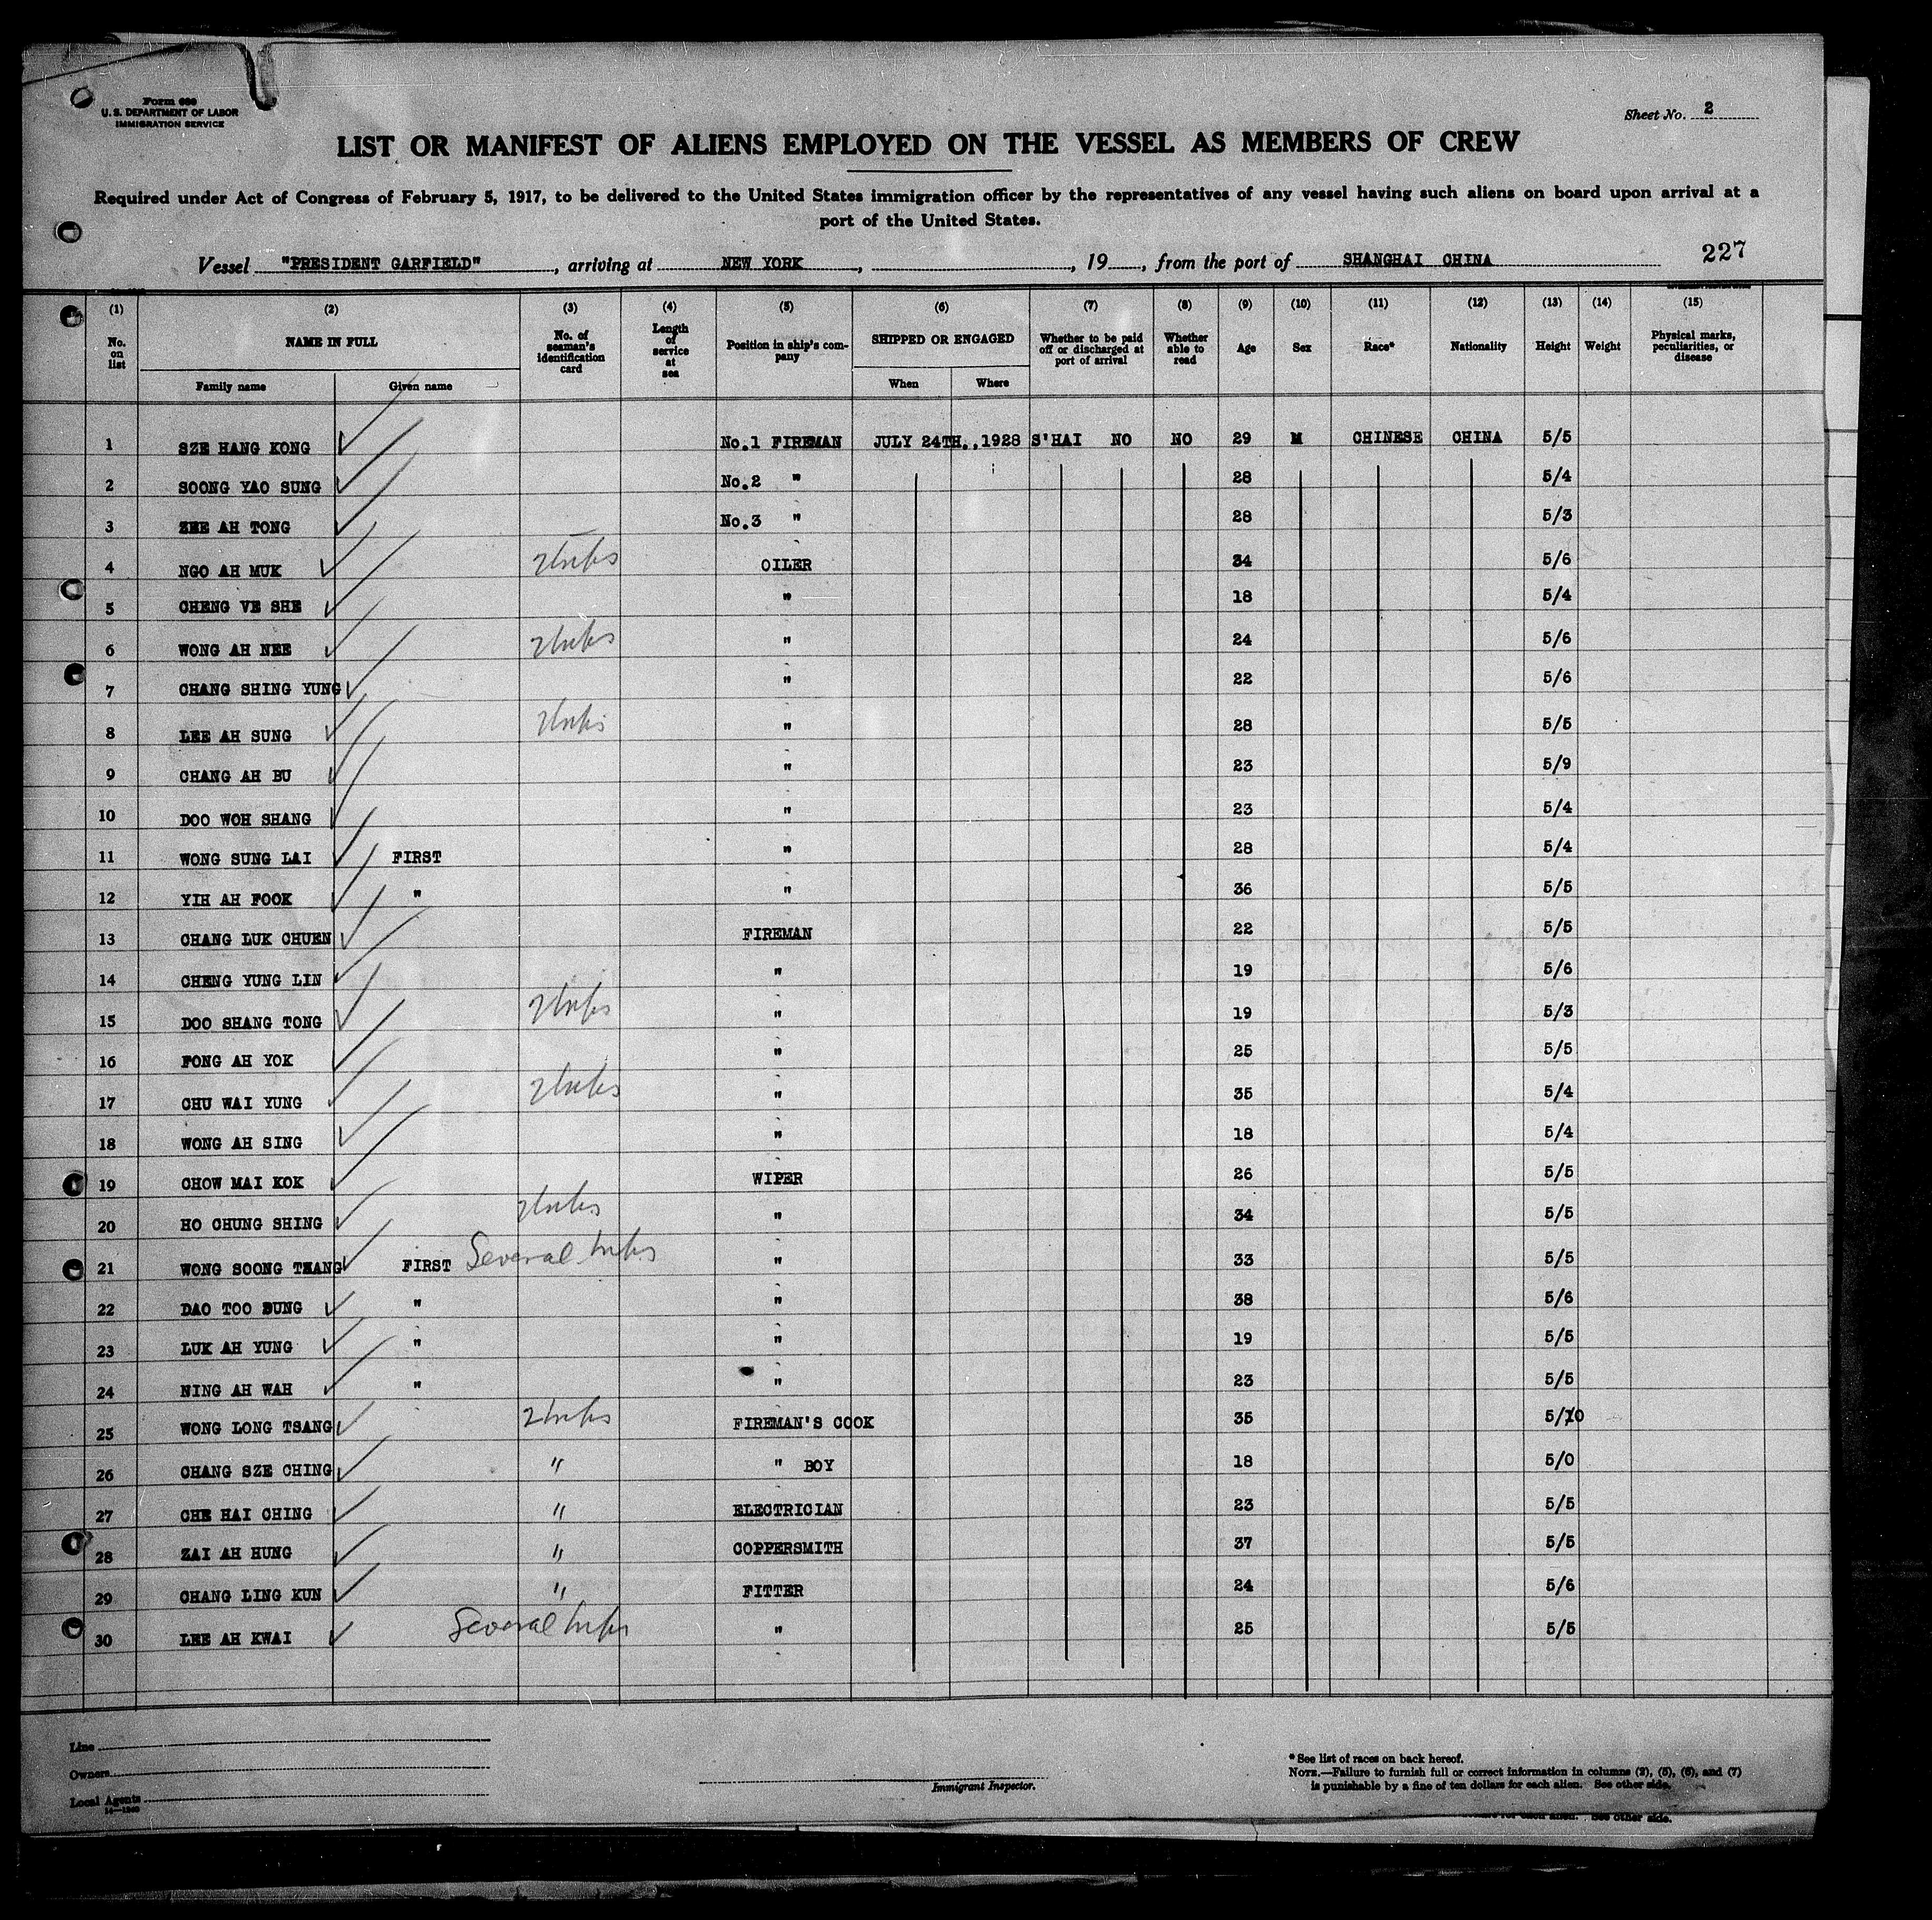 Form 680
U. S. DEPARTMENT OF LABOR
IMMIGRATION SERVICE
Sheet No. 2
LIST OR MANIFEST OF ALIENS EMPLOYED ON THE VESSEL AS MEMBERS OF CREW
Required under Act of Congress of February 5, 1917, to be delivered to the United States immigration officer by the representatives of any vessel having such aliens on board upon arrival at a
port of the United States.
Vessel "PRESIDENT GARFIELD", arriving at NEW YORK, , 19 , from the port of SHANGHAI CHINA 227
(1) (2) (3) (4) (5) (6) (7) (8) (9) (10) (11) (12) (13) (14) (15)
No. on list NAME IN FULL Family name Given name No. of seaman's identification card Length of service at sea Position in ship's company SHIPPED OR ENGAGED When Where Whether to be paid off or discharged at port of arrival Whether able to read Age Sex Race* Nationality Height Weight Physical marks, peculiarities, or disease
1 SZE HANG KONG No.1 FIREMAN JULY 24TH.,1928 S'HAI NO NO 29 M CHINESE CHINA 5/5
2 SOONG YAO SUNG No.2 " 28 5/4
3 ZEE AH TONG No.3 " 28 5/3
4 NGO AH MUK 2 trips OILER 34 5/6
5 CHENG VE SHE " 18 5/4
6 WONG AH NEE 2 trips " 24 5/6
7 CHANG SHING YUNG " 22 5/6
8 LEE AH SUNG 2 trips " 28 5/5
9 CHANG AH BU " 23 5/9
10 DOO WOH SHANG " 23 5/4
11 WONG SUNG LAI FIRST " 28 5/4
12 YIH AH FOOK " " 36 5/5
13 CHANG LUK CHUEN FIREMAN 22 5/5
14 CHENG YUNG LIN " 19 5/6
15 DOO SHANG TONG 2 trips " 19 5/3
16 FONG AH YOK " 25 5/5
17 CHU WAI YUNG 2 trips " 35 5/4
18 WONG AH SING " 18 5/4
19 CHOW MAI KOK WIPER 26 5/5
20 HO CHUNG SHING 2 trips " 34 5/5
21 WONG SOONG TZANG FIRST Several trips " 33 5/5
22 DAO TOO DUNG " " 38 5/6
23 LUK AH YUNG " " 19 5/5
24 NING AH WAH " " 23 5/5
25 WONG LONG TSANG 2 trips FIREMAN'S COOK 35 5/10
26 CHANG SZE CHING " " BOY 18 5/0
27 CHE HAI CHING " ELECTRICIAN 23 5/5
28 ZAI AH HUNG " COPPERSMITH 37 5/5
29 CHANG LING KUN " FITTER 24 5/6
30 LEE AH KWAI Several trips " 25 5/5
Line
Owners
Local Agents
14—1240
Immigrant Inspector.
*See list of races on back hereof.
NOTE.—Failure to furnish full or correct information in columns (2), (5), (6), and (7)
is punishable by a fine of ten dollars for each alien. See other side.
See other side.